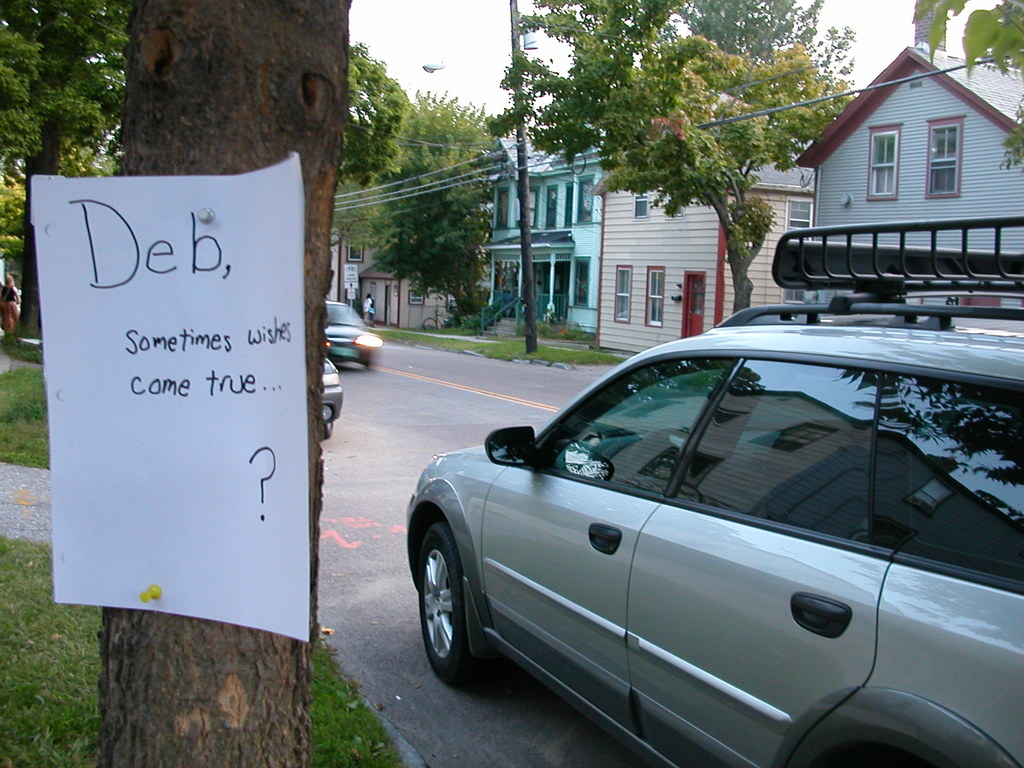 Deb,
Sometimes wishes
come true...
?